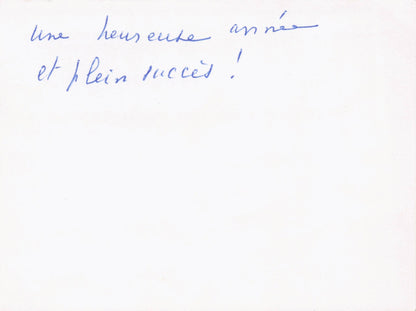 une heureuse année
et plein succès !